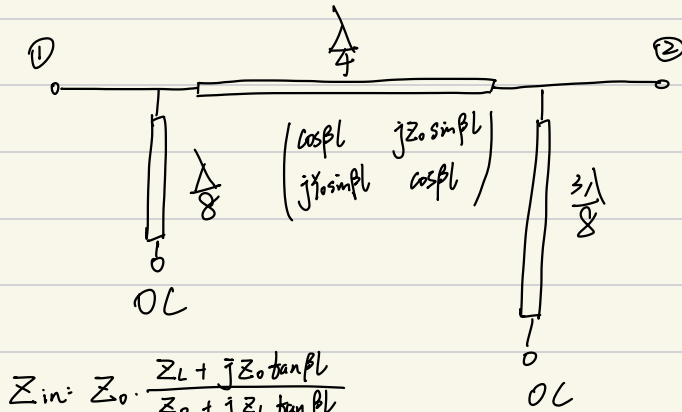 ① λ/4 ②
(cosβl jZ₀sinβl
jY₀sinβl cosβl)
λ/8 3λ/8
OC
Zin = Z₀ · (ZL + jZ₀tanβl)/(Z₀ + jZL tanβl)
OC